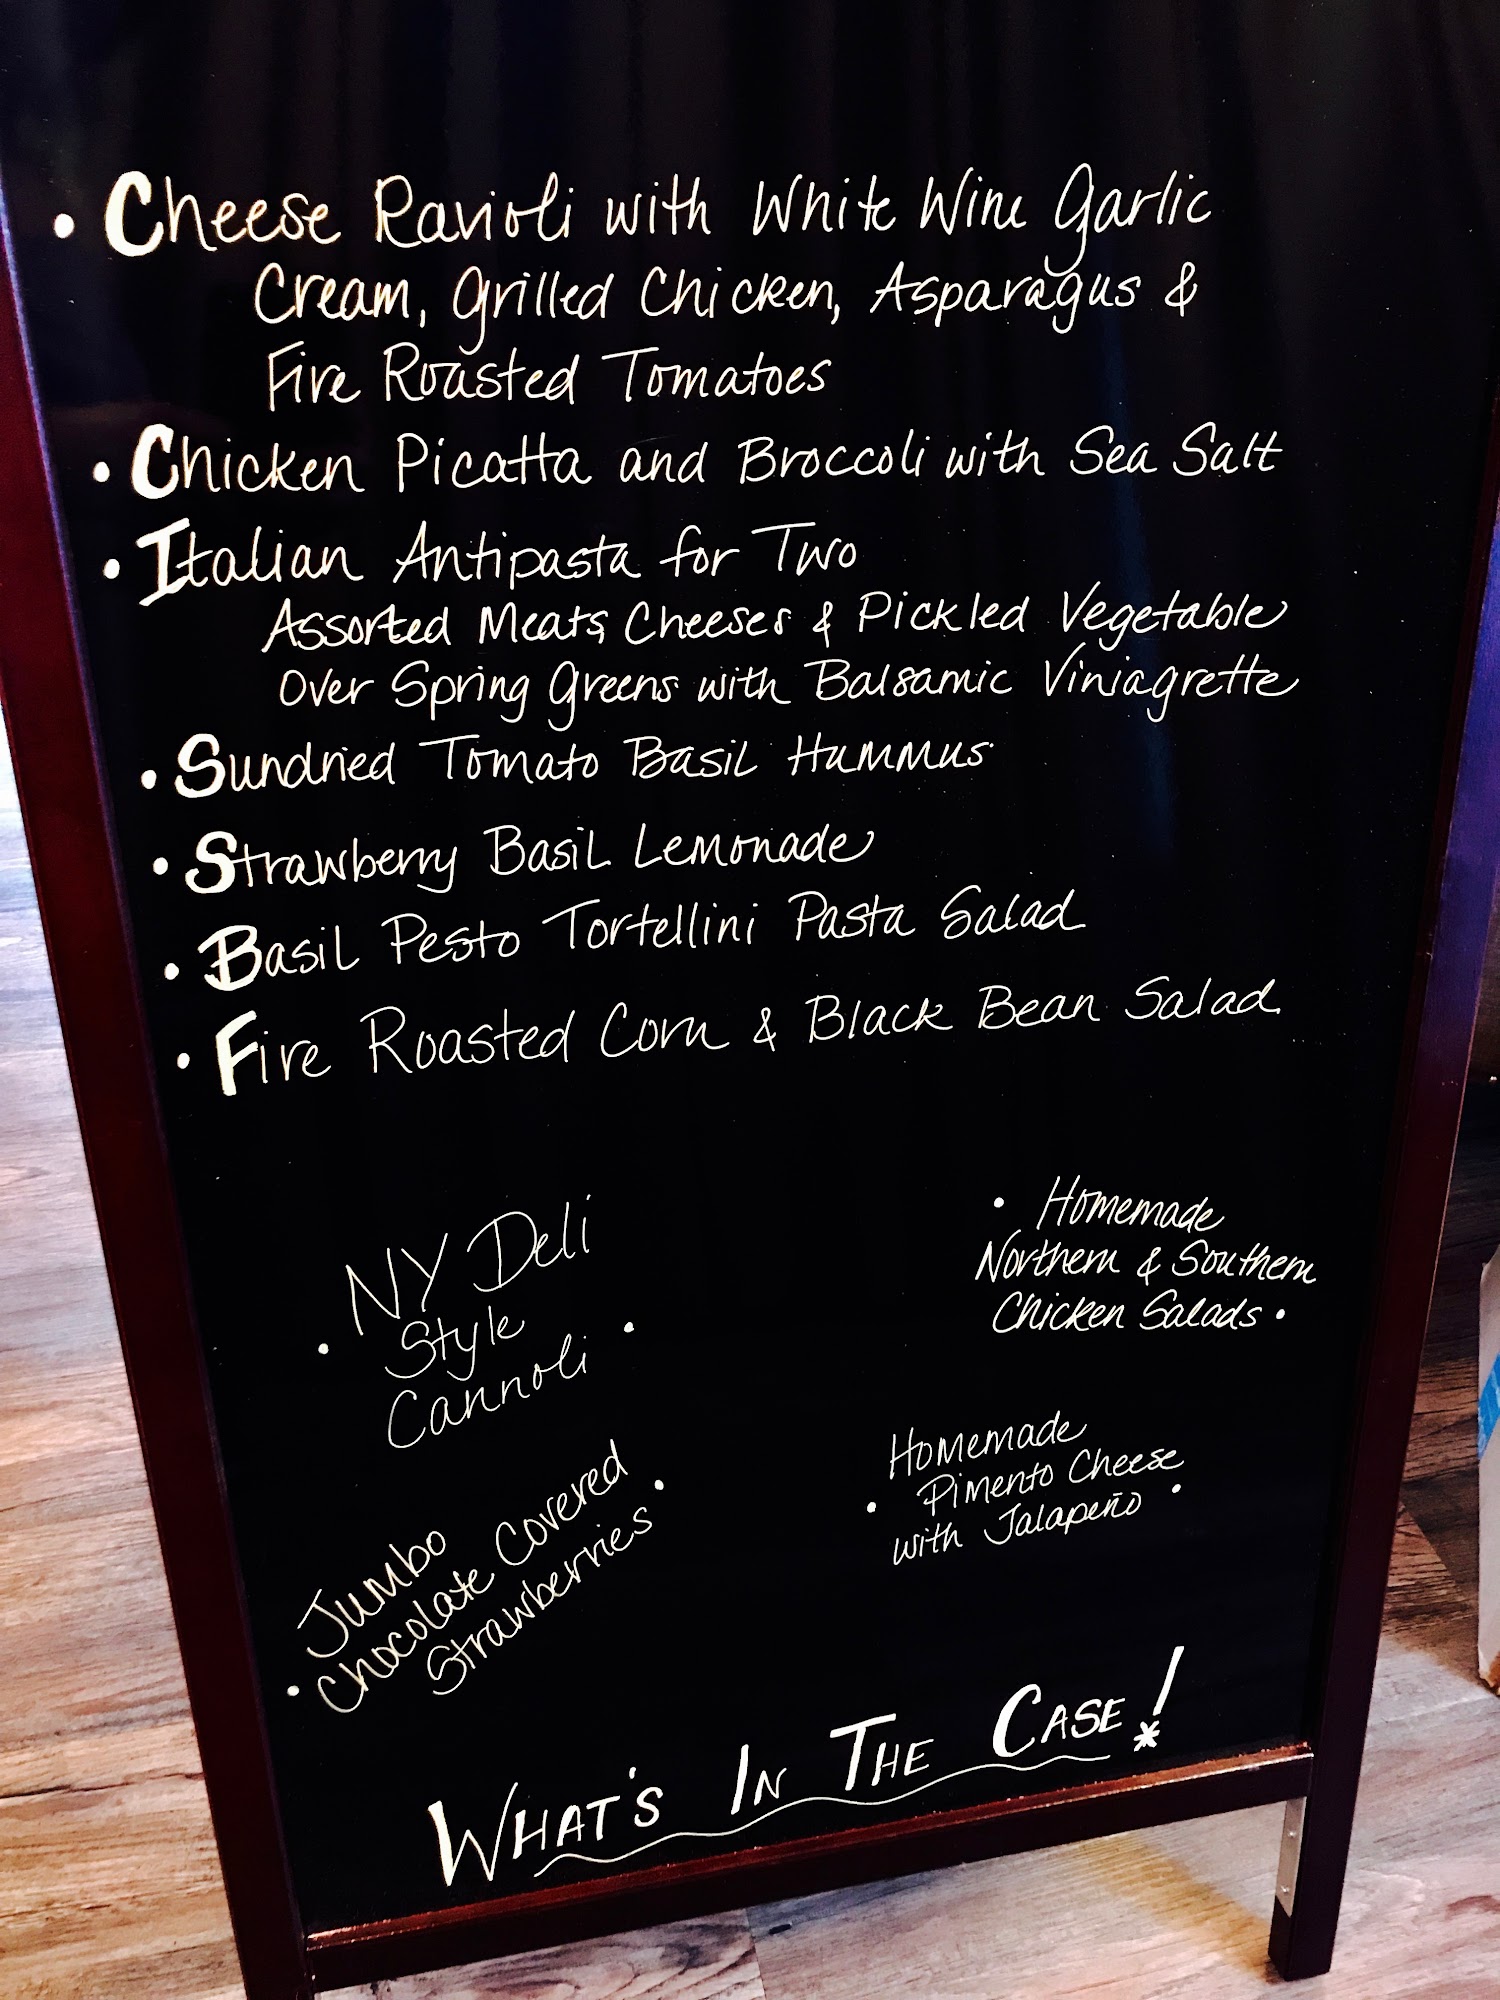 • Cheese Ravioli with White Wine Garlic
Cream, Grilled Chicken, Asparagus &
Fire Roasted Tomatoes
• Chicken Picatta and Broccoli with Sea Salt
• Italian Antipasta for Two
Assorted Meats, Cheeses & Pickled Vegetable
Over Spring Greens with Balsamic Viniagrette
• Sundried Tomato Basil Hummus
• Strawberry Basil Lemonade
• Basil Pesto Tortellini Pasta Salad
• Fire Roasted Corn & Black Bean Salad
• NY Deli
Style
Cannoli •
• Homemade
Northern & Southern
Chicken Salads •
Jumbo
• Chocolate Covered
Strawberries •
Homemade
• Pimento Cheese •
with Jalapeño
WHAT'S IN THE CASE!